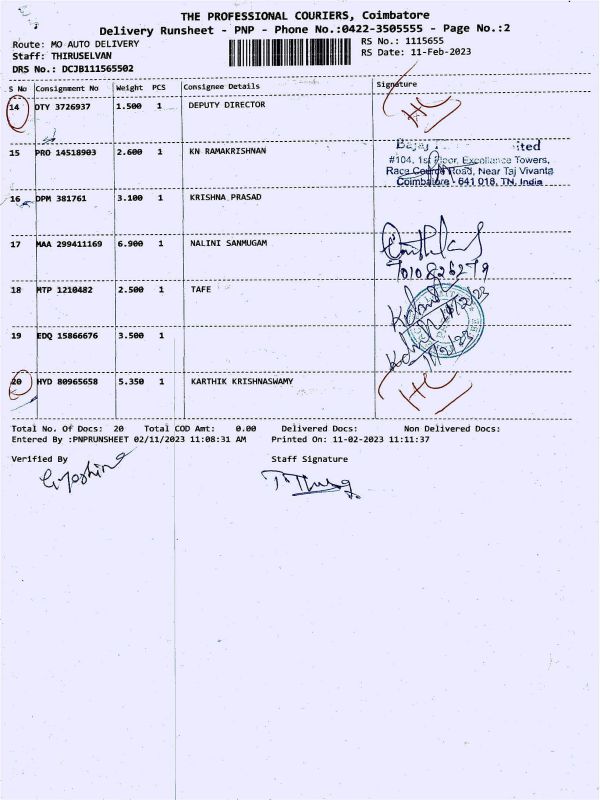 THE PROFESSIONAL COURIERS, Coimbatore
Delivery Runsheet - PNP - Phone No.:0422-3505555 - Page No.:2
Route: MO AUTO DELIVERY RS No.: 1115655
Staff: THIRUSELVAN RS Date: 11-Feb-2023
DRS No.: DCJB111565502
S No Consignment No Weight PCS Consignee Details Signature
14 DTY 3726937 1.500 1 DEPUTY DIRECTOR
15 PRO 14518903 2.600 1 KN RAMAKRISHNAN
Bajaj ited
#104, 1st Floor, Excellance Towers,
Race Course Road, Near Taj Vivanta
Coimbatore - 641 018, TN, India
16 DPM 381761 3.100 1 KRISHNA PRASAD
17 MAA 299411169 6.900 1 NALINI SANMUGAM
7010826279
18 MTP 1210482 2.500 1 TAFE
11/2/23
19 EDQ 15866676 3.500 1
11/2/23
20 HYD 80965658 5.350 1 KARTHIK KRISHNASWAMY
Total No. Of Docs: 20 Total COD Amt: 0.00 Delivered Docs: Non Delivered Docs:
Entered By :PNPRUNSHEET 02/11/2023 11:08:31 AM Printed On: 11-02-2023 11:11:37
Verified By Staff Signature